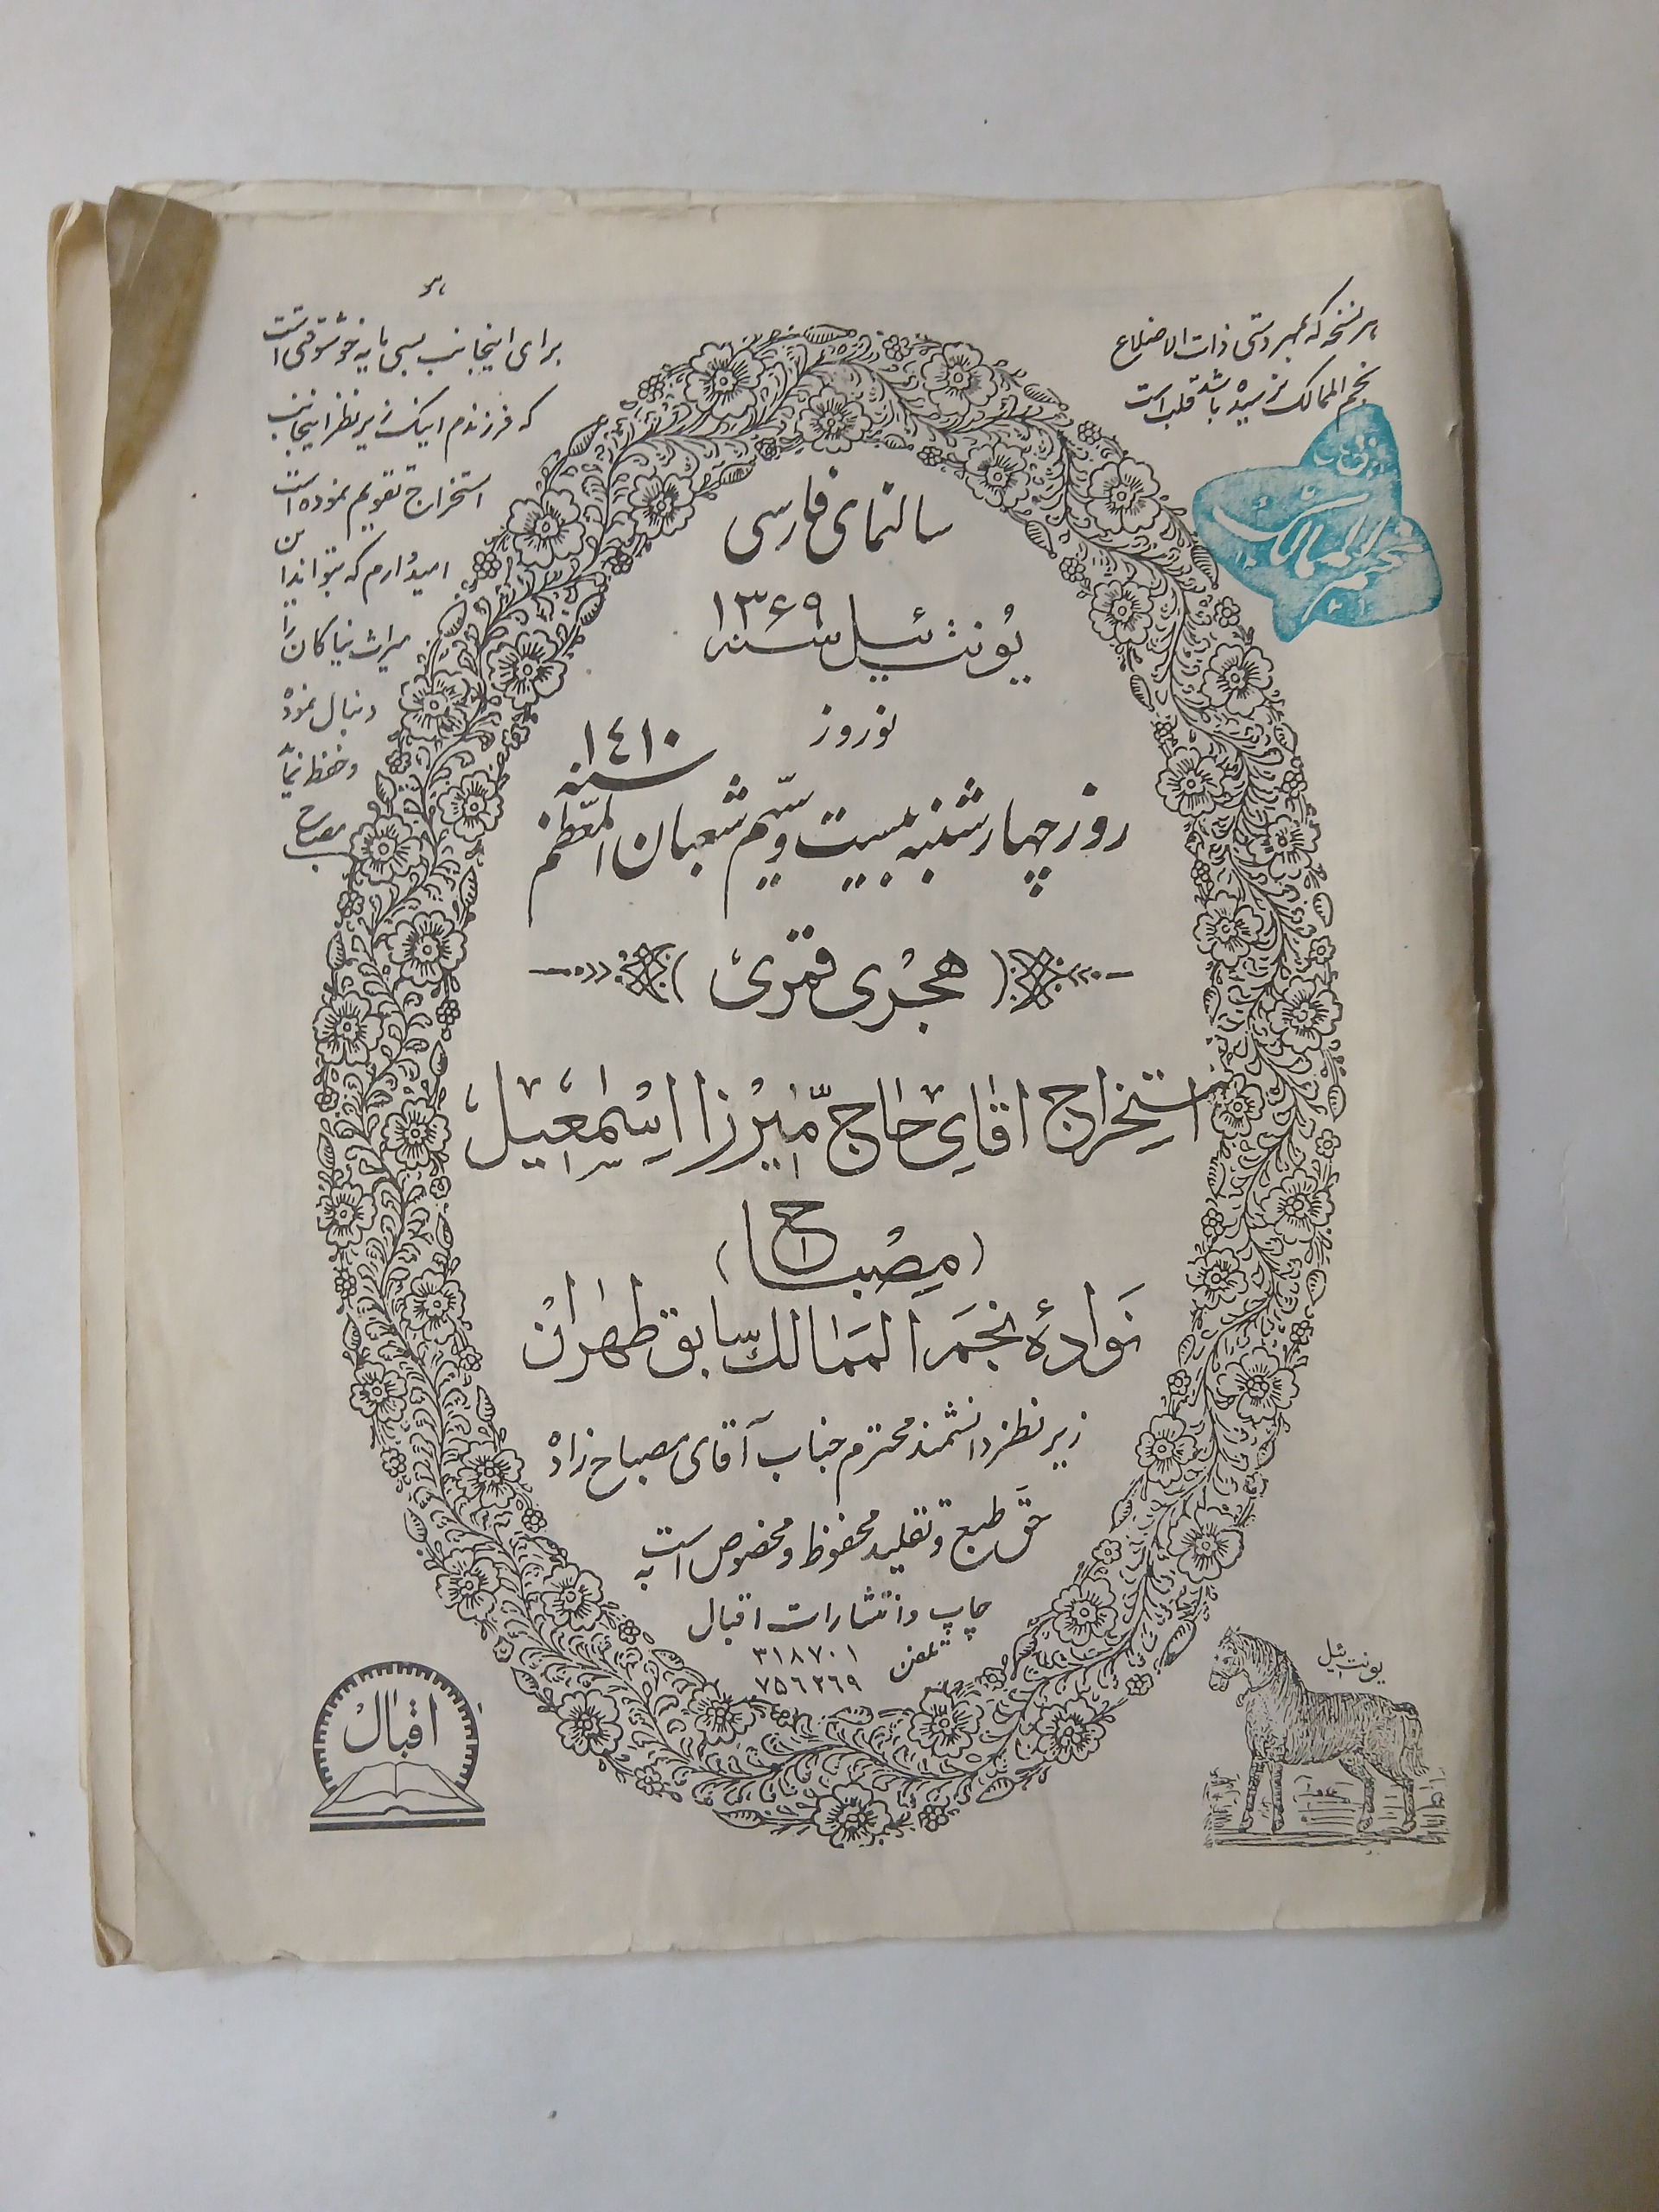 هر نسخه که بمهر دستی ذات الاضلاع
نجم الممالک نرسیده باشد قلب است
نجم الممالک
برای اینجانب بسی مایه خوشوقتی است
که فرزندم اینک زیر نظر اینجانب
استخراج تقویم نموده است
امیدوارم که بتواند این
میراث نیاکان را
دنبال نموده
و حفظ نماید
مصباح
سالنمای فارسی
یونت ئیل سنه ۱۳۶۹
نوروز
روز چهارشنبه بیست و سیّم شعبان المعظّم سنه ۱٤۱۰
(هجری قمری)
استخراج اقای حاج میرزا اسمعیل
(مصباح)
نوادهٔ نجم الممالک سابق طهران
زیر نظر دانشمند محترم جناب آقای مصباح زاده
حق طبع و تقلید محفوظ و مخصوص است به
چاپ و انتشارات اقبال
تلفن ۳۱۸۷۰۱
۷۵٦۲٦۹
اقبال
یونت ئیل